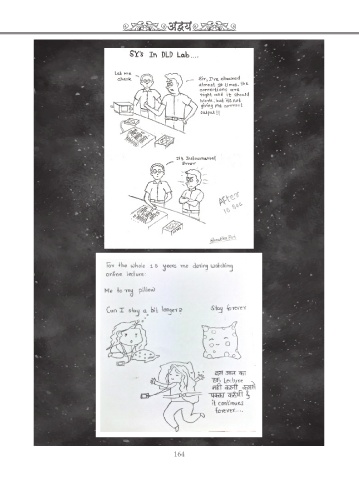 अद्वय
SY's In DLD Lab....
Let me
check
Sir, I've checked
almost 50 times, the
connections are
right and it should
work, but it's not
giving me correct
output!!
It's Instrumental
Error
After
10 sec
For the whole 1.5 years me during watching
online lecture:
Me to my pillow:
Can I stay a bit longer?
Stay forever
बस आज का
Lecture
नहीं करती
it continues
forever....
164